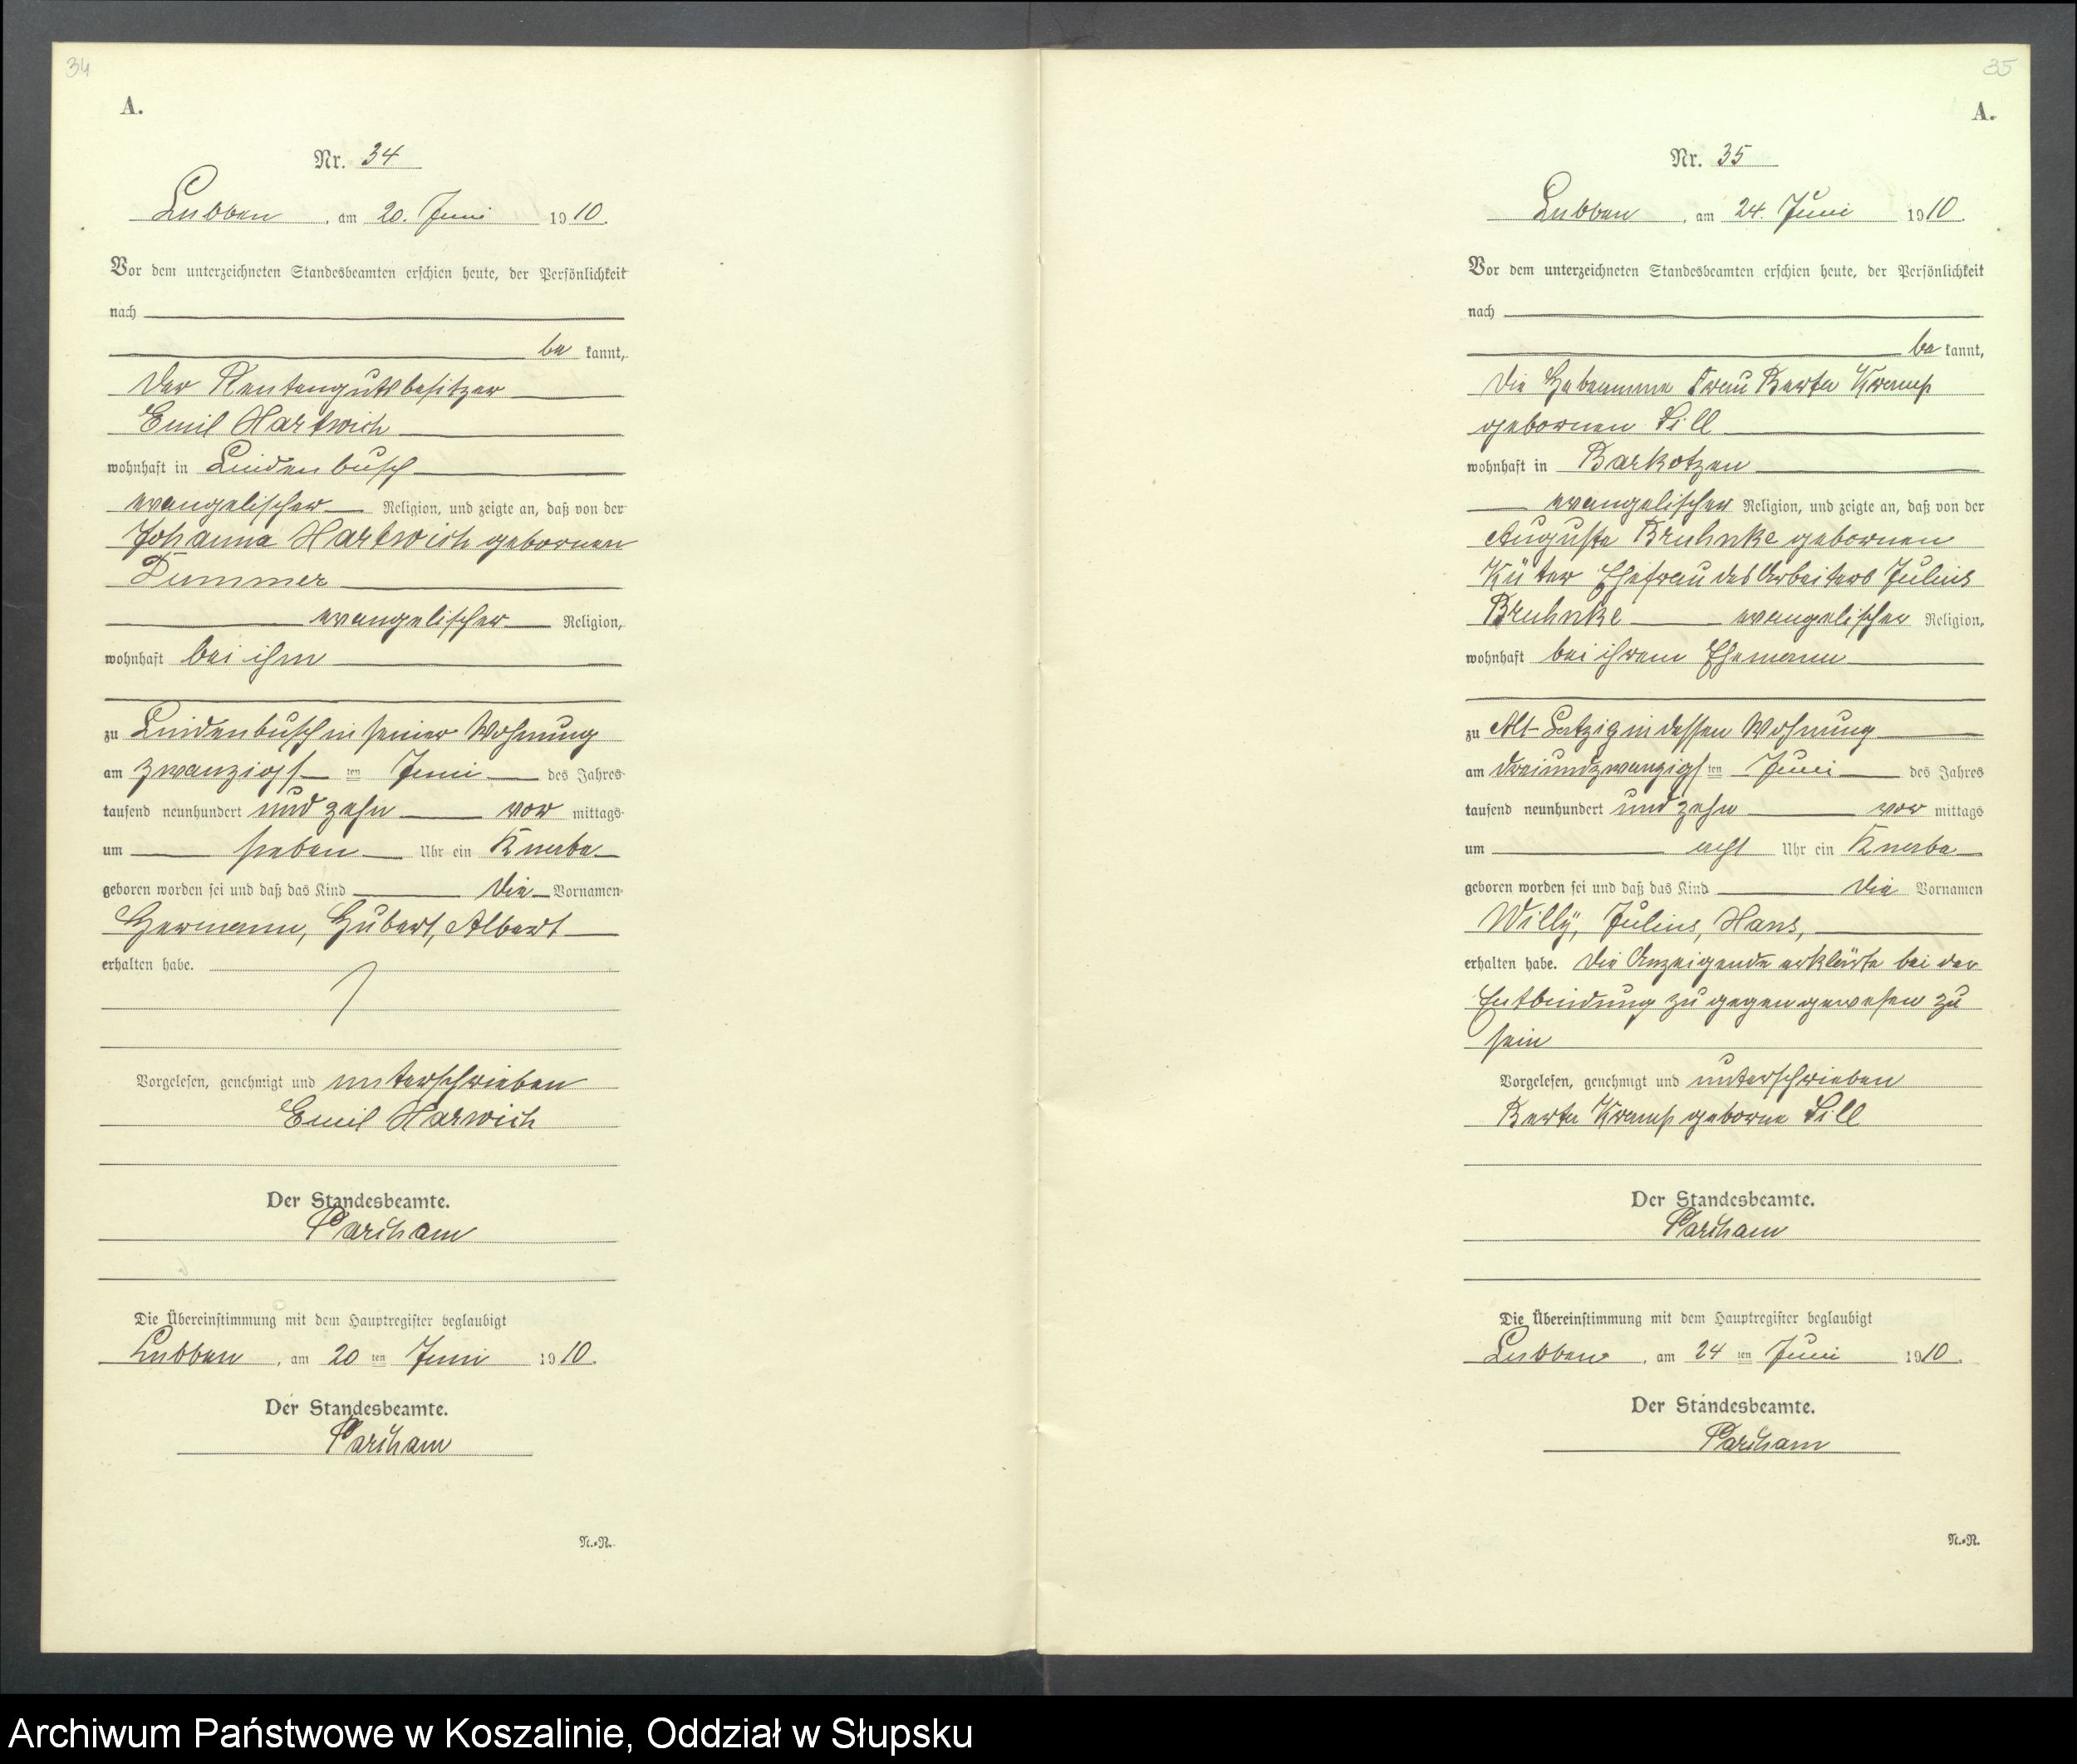 34
A.
Nr. 34
Lubben, am 20. Juni 1910.
Vor dem unterzeichneten Standesbeamten erschien heute, der Persönlichkeit
nach
be kannt,
der Rentengutsbesitzer
Emil Hartwich
wohnhaft in Lindenbusch
evangelischer Religion, und zeigte an, daß von der
Johanna Hartwich gebornen
Dummer
evangelischer Religion,
wohnhaft bei ihm
zu Lindenbusch in seiner Wohnung
am zwanzigsten Juni des Jahres
tausend neunhundert und zehn vor mittags
um sieben Uhr ein Knabe
geboren worden sei und daß das Kind die Vornamen
Hermann, Hubert, Albert
erhalten habe.
Vorgelesen, genehmigt und unterschrieben
Emil Harwich
Der Standesbeamte.
Parcham
Die Übereinstimmung mit dem Hauptregister beglaubigt
Lubben, am 20 ten Juni 1910.
Der Standesbeamte.
Parcham
N.-R.
35
A.
Nr. 35
Lubben, am 24. Juni 1910.
Vor dem unterzeichneten Standesbeamten erschien heute, der Persönlichkeit
nach
be kannt,
die Hebeamme Frau Berta Kramp
gebornen Sill
wohnhaft in Barkotzen
evangelischer Religion, und zeigte an, daß von der
Auguste Bruhnke gebornen
Küter Ehefrau des Arbeiters Julius
Bruhnke evangelischer Religion,
wohnhaft bei ihrem Ehemann
zu Alt-Latzig in dessen Wohnung
am dreiundzwanzigsten Juni des Jahres
tausend neunhundert und zehn vor mittags
um acht Uhr ein Knabe
geboren worden sei und daß das Kind die Vornamen
Willÿ, Julius, Hans,
erhalten habe. Die Anzeigende erklärte bei der
Entbindung zugegen gewesen zu
sein
Vorgelesen, genehmigt und unterschrieben
Berta Kramp geborne Sill
Der Standesbeamte.
Parcham
Die Übereinstimmung mit dem Hauptregister beglaubigt
Lubben, am 24 ten Juni 1910.
Der Standesbeamte.
Parcham
N.-R.
Archiwum Państwowe w Koszalinie, Oddział w Słupsku